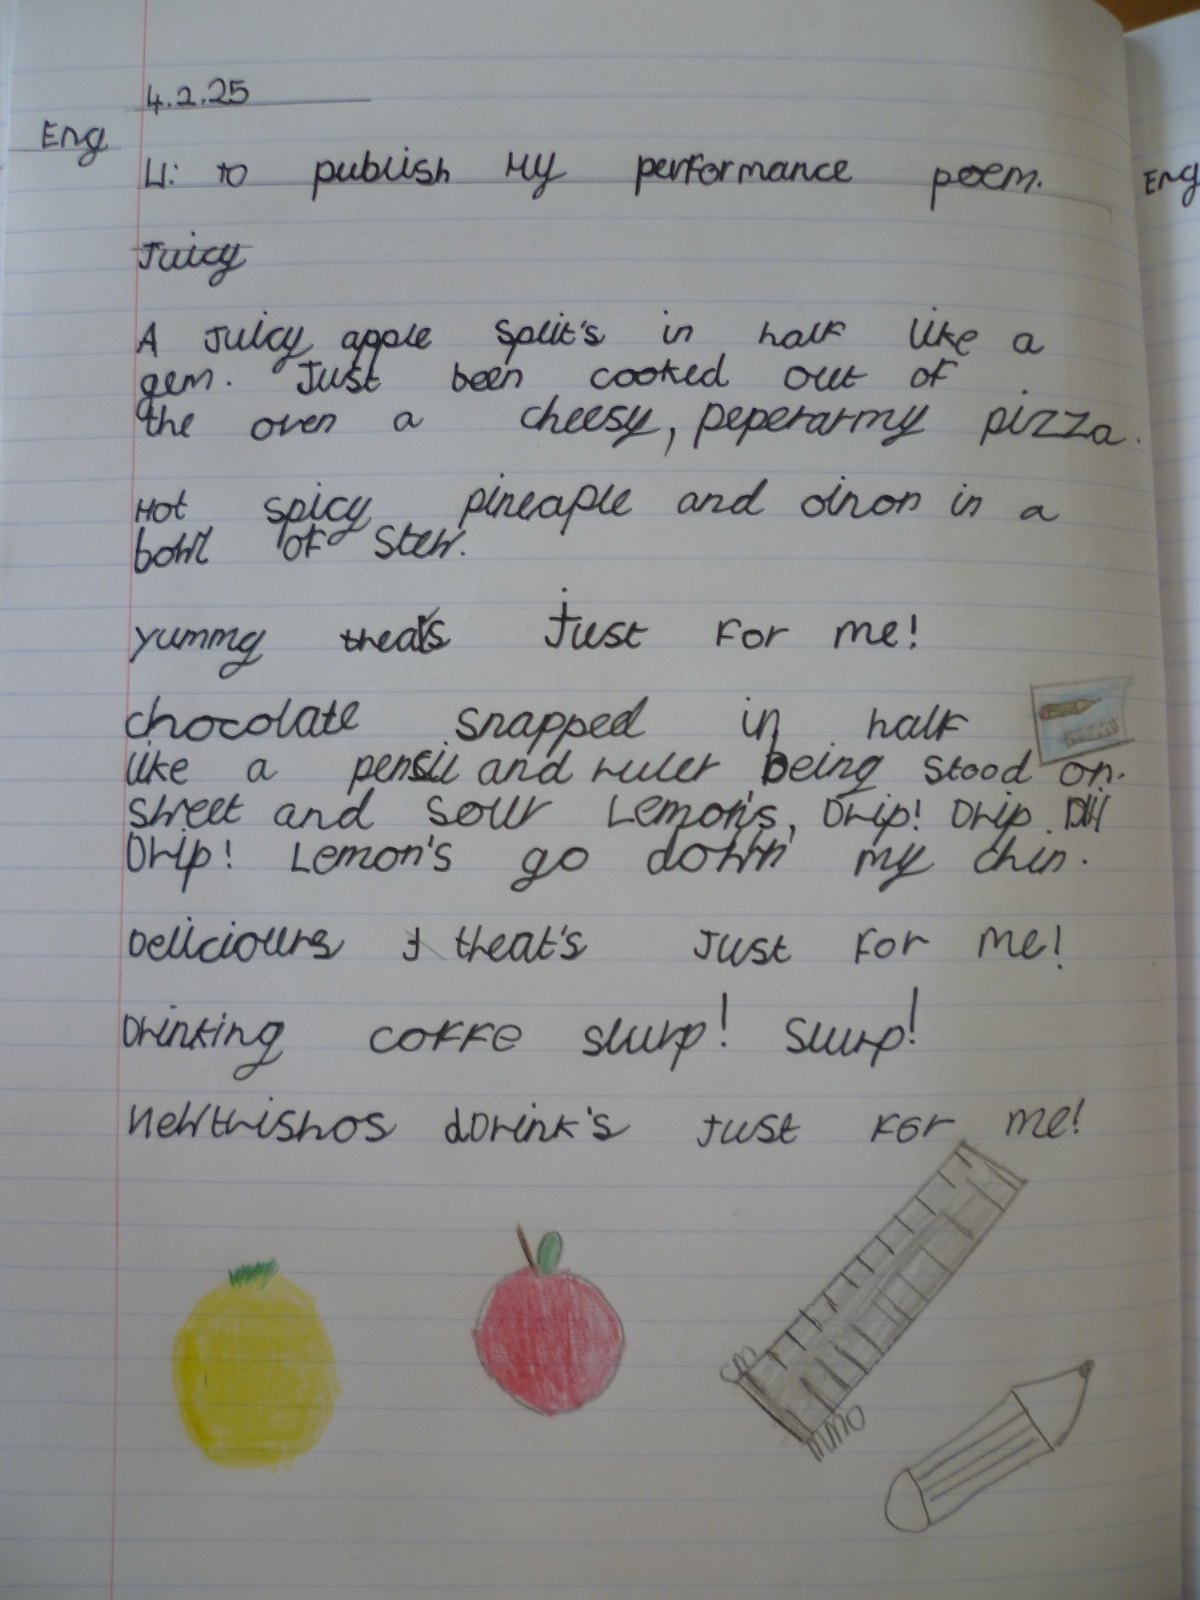 4.2.25
Eng
LI: to publish my performance poem.
Eng
Juicy
A Juicy apple split's in half like a
gem. Just been cooked out of
the oven a cheesy, peperarmy pizza.
Hot spicy pineaple and oinon in a
bowl of stew.
yummy treats Just for me!
chocolate snapped in half
like a pensil and ruler being stood on.
sweet and sour Lemon's, Drip! Drip
Drip! Lemon's go down my chin.
Deliciours treat's Just for me!
Drinking coffe slurp! slurp!
newtrishos drink's Just for me!
cm
mm0